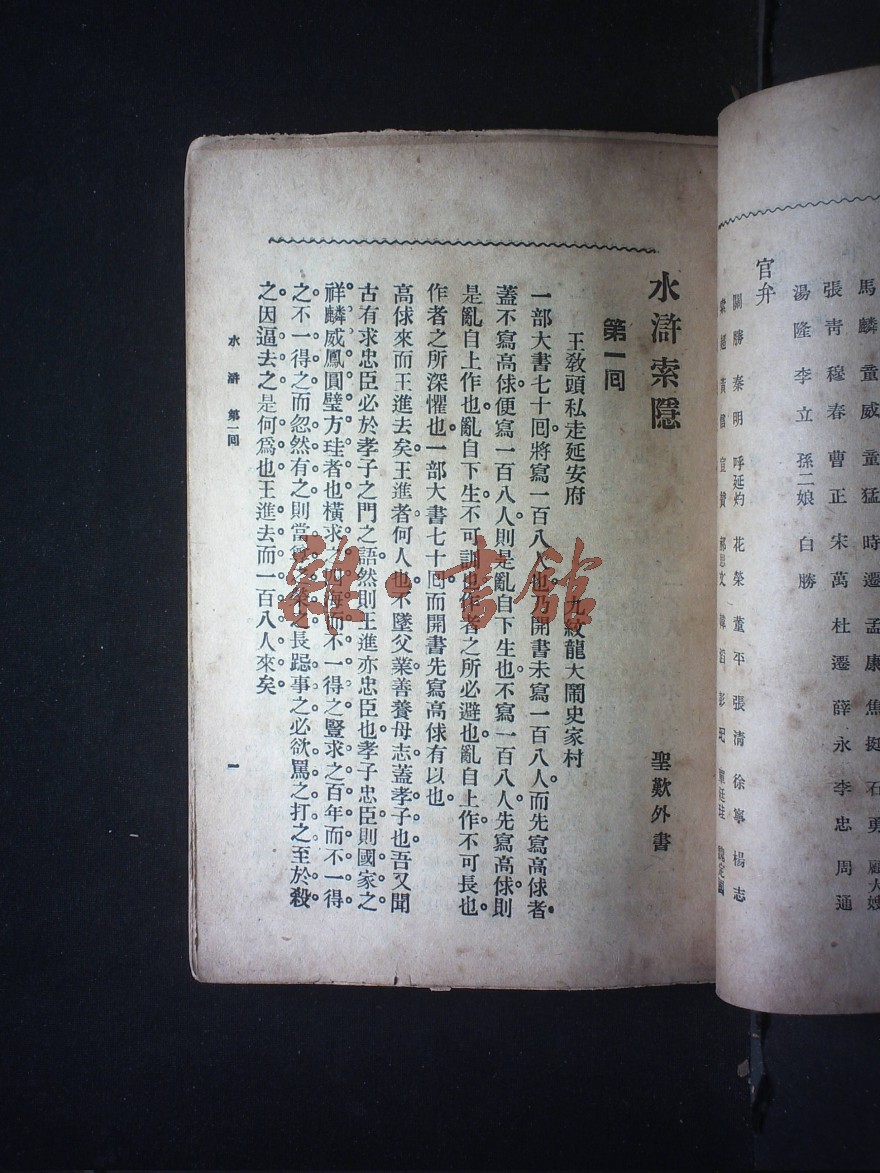 馬麟 童威 童猛 時遷 孟康 焦挺 石勇 顧大嫂
張青 穆春 曹正 宋萬 杜遷 薛永 李忠 周通
湯隆 李立 孫二娘 白勝
官弁
關勝 秦明 呼延灼 花榮 董平 張清 徐寧 楊志
索超 黃信 宣贊 郝思文 韓滔 彭玘 單廷珪 魏定國
水滸索隱
聖歎外書
第一回
王敎頭私走延安府 九紋龍大鬧史家村
一部大書七十回將寫一百八人也乃開書未寫一百八人而先寫高俅者
蓋不寫高俅便寫一百八人則是亂自下生也不寫一百八人先寫高俅則
是亂自上作也亂自下生不可訓也作者之所必避也亂自上作不可長也
作者之所深懼也一部大書七十回而開書先寫高俅有以也
高俅來而王進去矣王進者何人也不墜父業善養母志蓋孝子也吾又聞
古有求忠臣必於孝子之門之語然則王進亦忠臣也孝子忠臣則國家之
祥麟威鳳圓璧方珪者也橫求之四海而不一得之豎求之百年而不一得
之不一得之而忽然有之則當 之長跽事之必欲罵之打之至於殺
之因逼去之是何爲也王進去而一百八人來矣
水滸 第一回
一
雜·書館